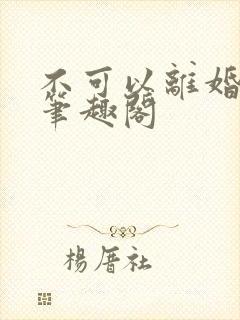 不可以離婚
筆趣閣
楊厝社